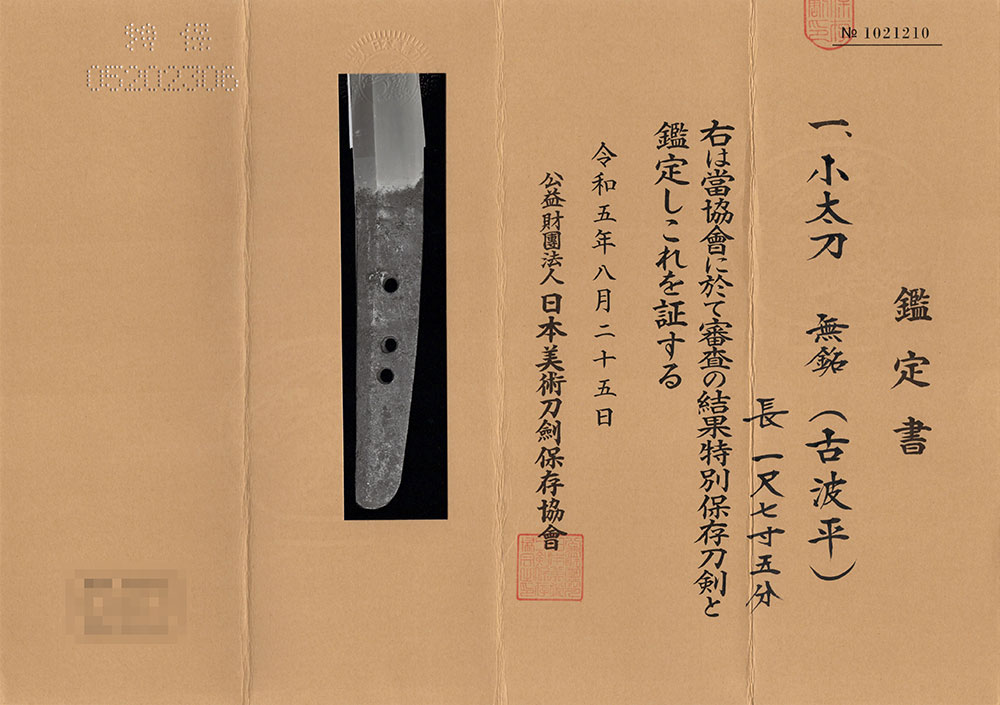 № 1021210
鑑定書
一、小太刀 無銘(古波平)
長一尺七寸五分
右は當協會に於て審査の結果特別保存刀剣と
鑑定しこれを証する
令和五年八月二十五日
公益財團法人日本美術刀劍保存協會
特保
05202306